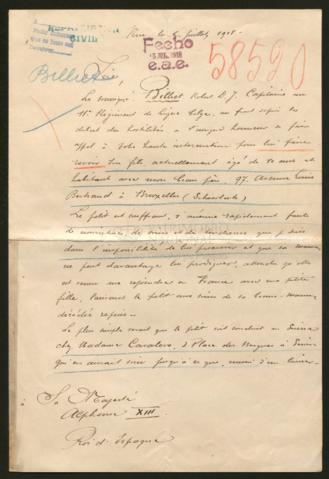 Nice le 5 Juillet 1918
REPATRIATION
CIVIL
Fecho
JUIL 1918
e.a.e.
58520
Billiet
Sire,
Le soussigné Billiet Robert D. J. Capitaine au
11e Régiment de Ligne belge, au front depuis le
début des hostilités a l'insigne honneur de faire
appel à votre haute intervention pour lui faire
revoir son fils actuellement âgé de 10 ans et
habitant avec mon beau-père, 97, Avenue Louis
Bertrand à Bruxelles (Schaerbeek)
Le petit est souffrant, s'anémie rapidement faute
de nourriture, de soins et de que je suis
dans l'impossibilité de lui procurer et que sa maman
ne peut davantage lui prodiguer, attendu qu'elle
est venue me rejoindre en France avec ma petite
fille, laissant le petit aux soins de sa bonne-maman
décédée depuis.
Le plus simple serait que le petit soit conduit en Suisse
chez Madame Cavalero, 3 Place des à
qui en aurait soin jusqu'à ce que, muni d'un
Sa Majesté
Alphonse XIII
Roi d'Espagne